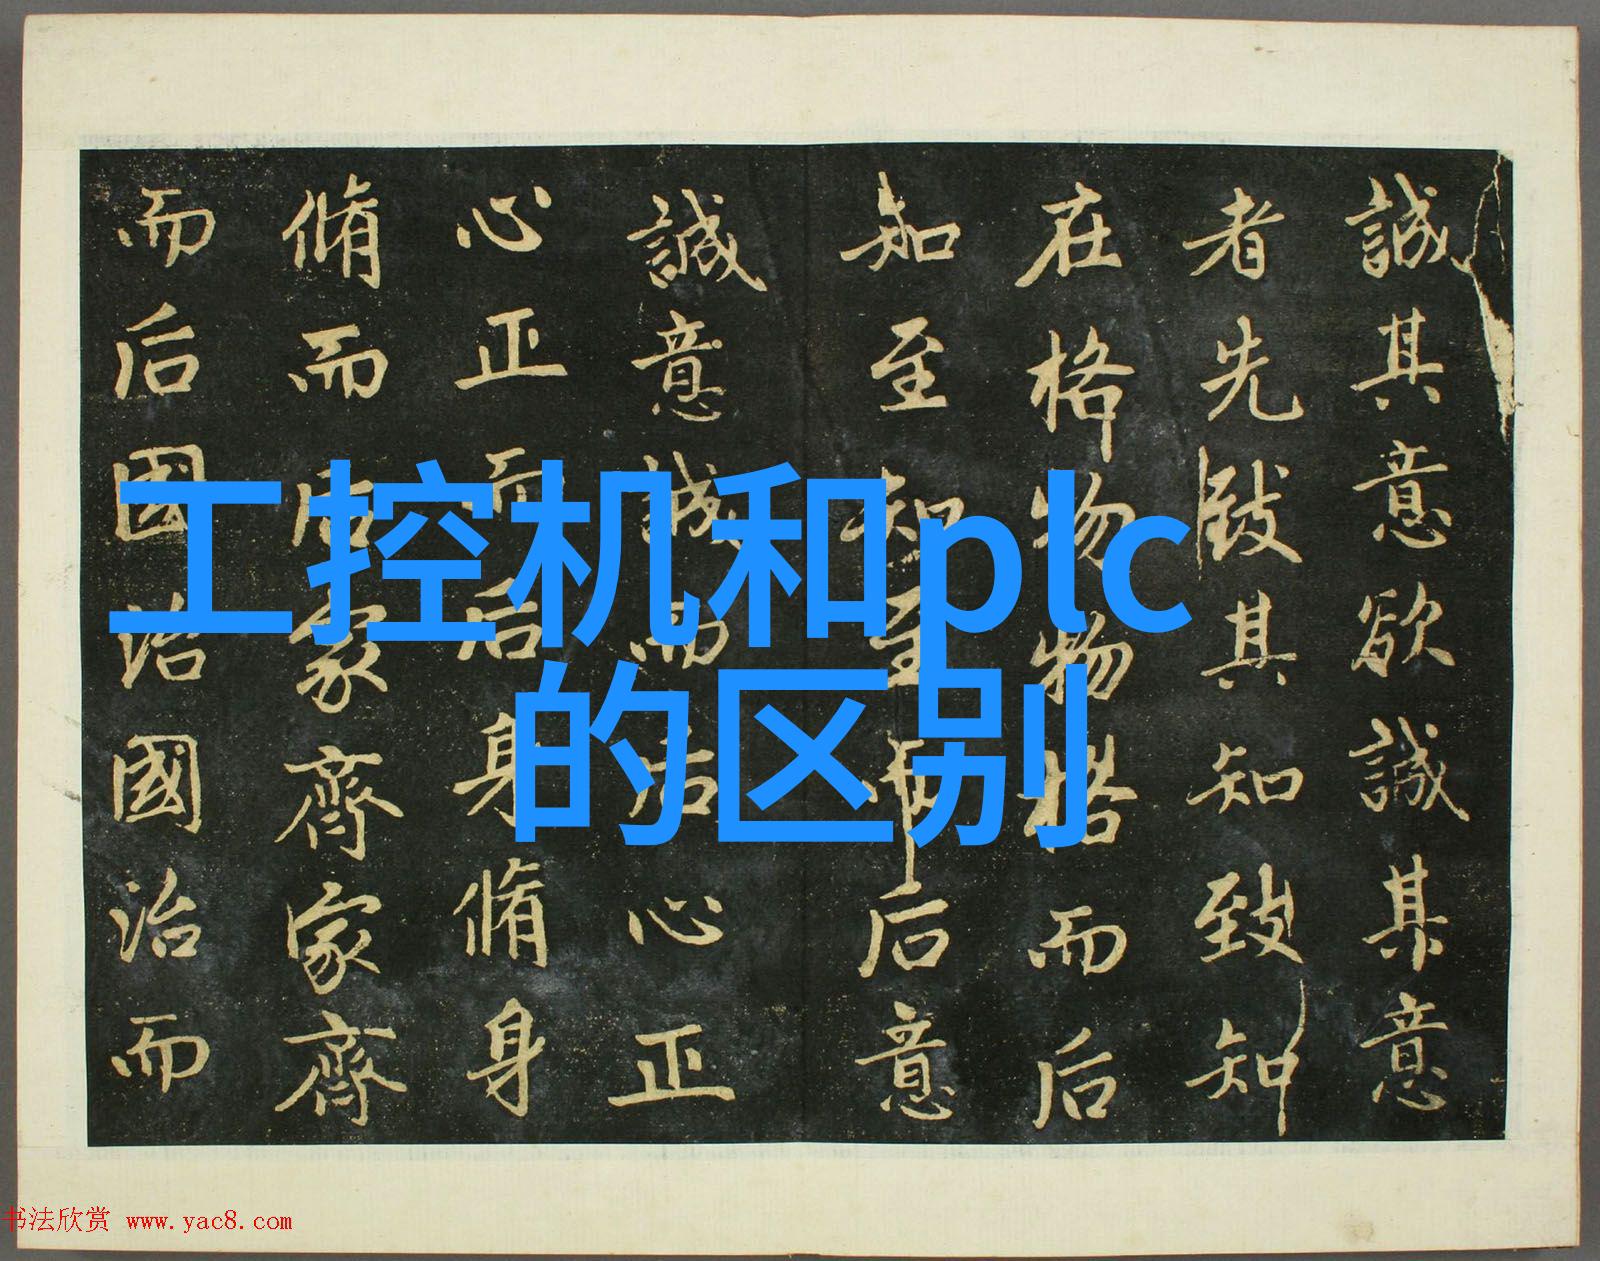 工控机和plc
的区别
誠其意欲誠其意
者先致其知致知
在格物物格而后
知至知至而后意
誠意誠而后心正
心正而后身脩身
脩而后家齊家齊
而后國治國治而
书法欣赏 www.yac8.com